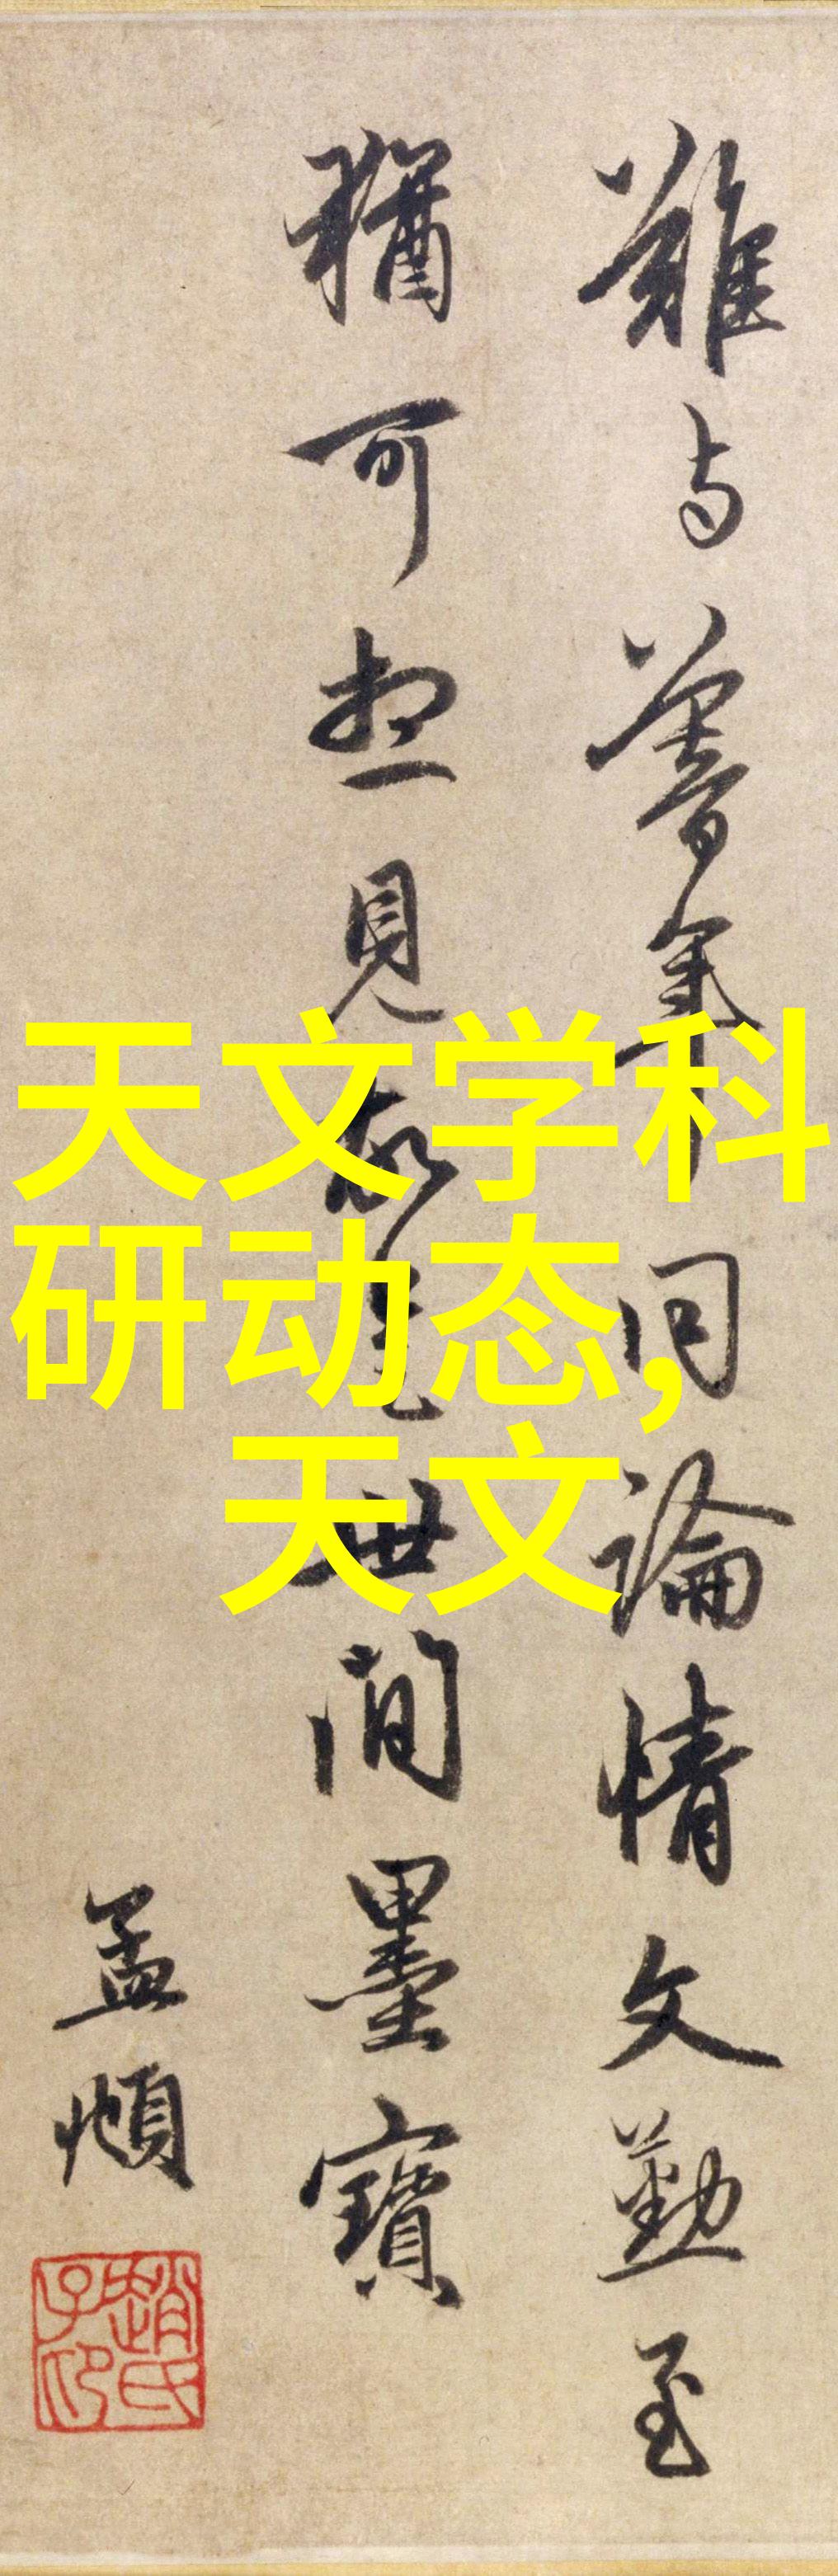 難与暮年同論情文勤至
猶可想見故是世間墨寶
孟頫
趙氏子印
天文学科
研动态,
天文